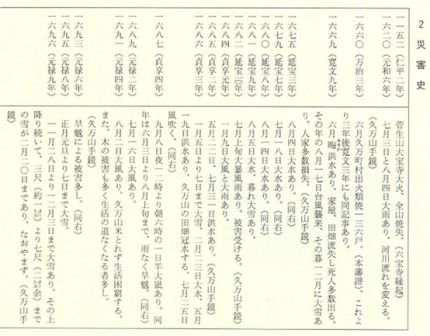 2 災害史
一一五二(仁平二年) 菅生山大宝寺大火、全山焼失。(大宝寺縁起)
一六二〇(元和六年) 七月三日と八月四日大雨あり、河川流れを変える。
(久万山手鏡)
一六六〇(万治三年) 六月久万町村出火類焼一三六戸。(本藩譜)、これよ
り三年後寛文三年にも同記事あり。
一六六九(寛文九年) 六月 洪水あり、家屋、田畑流失し死人多数出る。
その年の八月一七日台風襲来、その暮一二月に大雪あ
り、人家多数損失。(久万山手鏡)
一六七五(延宝三年) 八月四日大水あり。(同右)
一六七九(延宝七年) 七月一八日大水あり。(同右)
一六八〇(延宝八年) 八月一四日大水あり。(同右)
一六八一(延宝九年) 八月五日大水、暮れ大雪あり。
一六八二 七月上旬大暴風雨あり、被害受ける。(久万山手鏡)
一六八四(貞享元年) 一月九日大風と大雨あり。(久万山手鏡)
一六八六(貞享三年) 一月五日より七日まで大雪、二月二三日大水、五月
五日二二日、七月三一日洪水あり。(久万山手鏡)
一六八七(貞享四年) 九月八日夜一二時より朝六時の一日半大嵐あり。同
年は六月三日より八月上旬まで、雨なく旱魃。(同右)
一六八九(元禄二年) 七月一六日大風あり。
一六九一(元禄四年) 八月二日大風あり、久万山米とれず生活困窮する。
また、木の被害も多く生活の道なくなる者多し。
一六九三(元禄六年) 旱魃による被害多し。(同右)
一六九五(元禄八年) 正月元日より七日まで大雪。
一六九六(元禄九年) 一一月二八日より一二月三日まで大雪あり、その上
降り続いて、三尺(約一㍍)より七尺(二㍍余)まで
の雪が二月二〇日まであり、なおやまず。(久万山手
鏡)